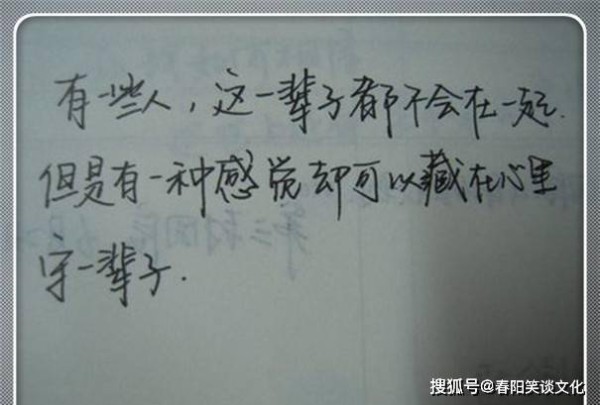 有一些人，这一辈子都不会在一起.
但是有一种感觉却可以藏在心里
守一辈子.
搜狐号@春阳笑谈文化